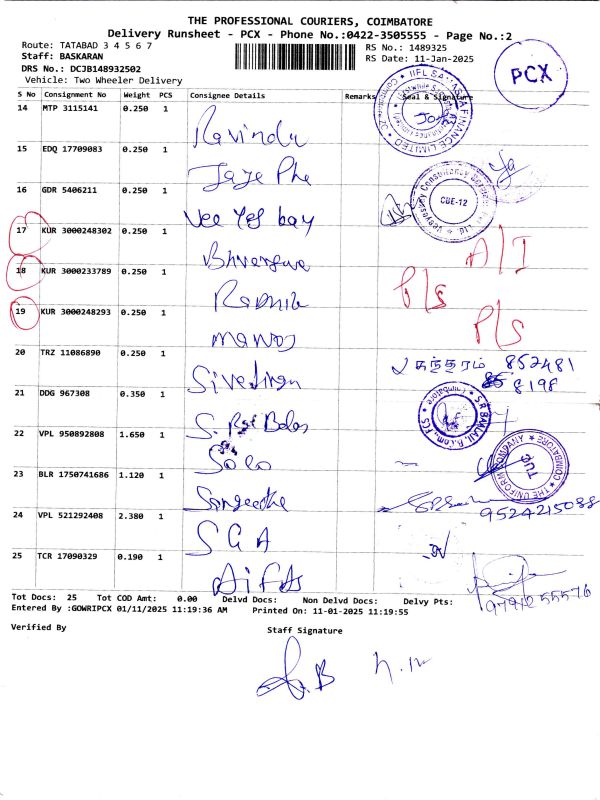 THE PROFESSIONAL COURIERS, COIMBATORE
Delivery Runsheet - PCX - Phone No.:0422-3505555 - Page No.:2
Route: TATABAD 3 4 5 6 7
RS No.: 1489325
Staff: BASKARAN
RS Date: 11-Jan-2025
DRS No.: DCJB148932502
Vehicle: Two Wheeler Delivery
PCX
S No Consignment No Weight PCS Consignee Details Remarks Seal & Signature
14 MTP 3115141 0.250 1 Ravindu
15 EDQ 17709083 0.250 1 Jaye Phe
16 GDR 5406211 0.250 1 Vee Yes bay
CBE-12
17 KUR 3000248302 0.250 1
A/I
18 KUR 3000233789 0.250 1
P/S
19 KUR 3000248293 0.250 1 manoj
P/S
20 TRZ 11086890 0.250 1
852481
8198
21 DDG 967308 0.350 1
22 VPL 950892808 1.650 1 Solo
THE UNIFORM COMPANY COIMBATORE
TUC
23 BLR 1750741686 1.120 1 Sangeethe
9524215088
24 VPL 521292408 2.380 1 SGA
25 TCR 17090329 0.190 1
9791255576
Tot Docs: 25 Tot COD Amt: 0.00 Delvd Docs: Non Delvd Docs: Delvy Pts:
Entered By :GOWRIPCX 01/11/2025 11:19:36 AM Printed On: 11-01-2025 11:19:55
Verified By Staff Signature